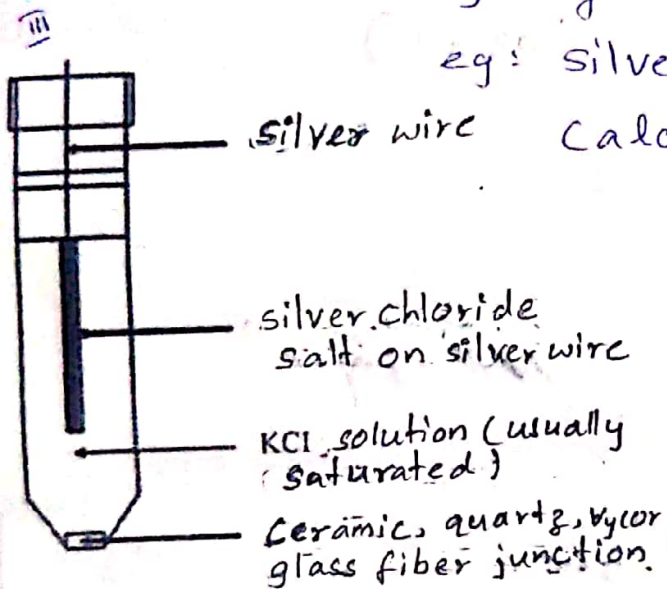 III
eg: Silve
silver wire
Calo
silver chloride
salt on silver wire
KCl solution (usually
saturated)
Ceramic, quartz, vycor
glass fiber junction.